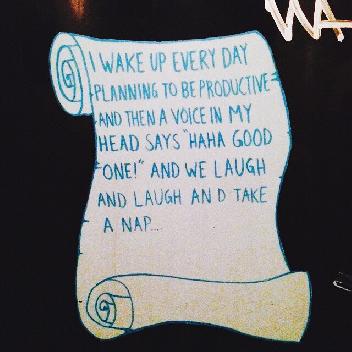 WA
I WAKE UP EVERY DAY
PLANNING TO BE PRODUCTIVE
AND THEN A VOICE IN MY
HEAD SAYS "HAHA GOOD
ONE!" AND WE LAUGH
AND LAUGH AND TAKE
A NAP...